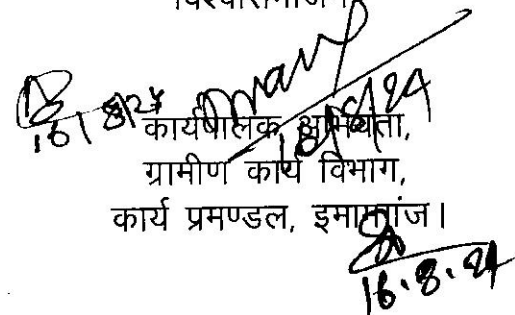 विश्वासभाजन
16/8/24
16/8/24
कार्यपालक अभियंता,
ग्रामीण कार्य विभाग,
कार्य प्रमण्डल, इमामगंज।
16.8.24